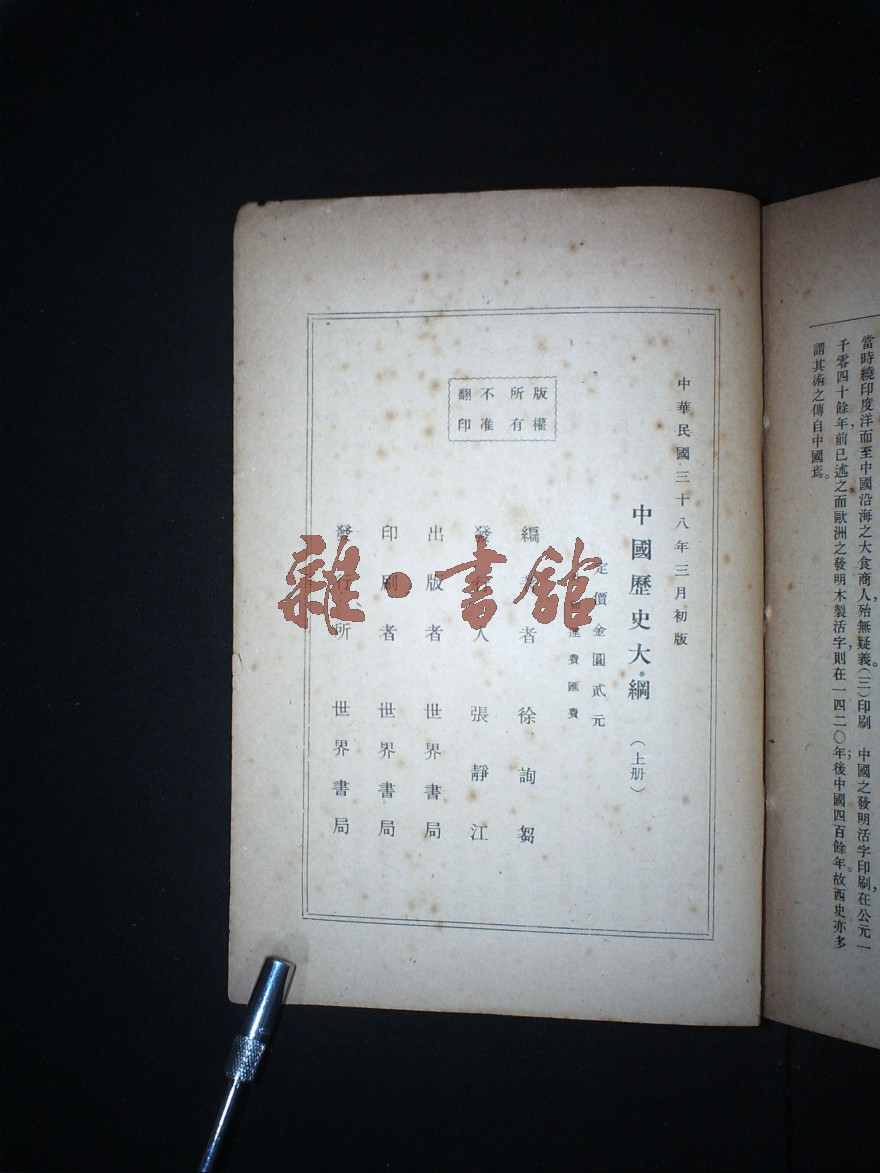 當時繞印度洋而至中國沿海之大食商人，殆無疑義。（三）印刷　中國之發明活字印刷，在公元一
千零四十餘年前，已述之，而歐洲之發明木製活字，則在一四二〇年；後中國四百餘年。故西史亦多
謂其術之傳自中國焉。
中華民國三十八年三月初版
中國歷史大綱（上册）
定價金圓貳元
費匯費
版權
所有
不准
翻印
編 者 徐詢芻
發 人 張靜江
出版者 世界書局
印刷者 世界書局
發行所 世界書局
雜·書館